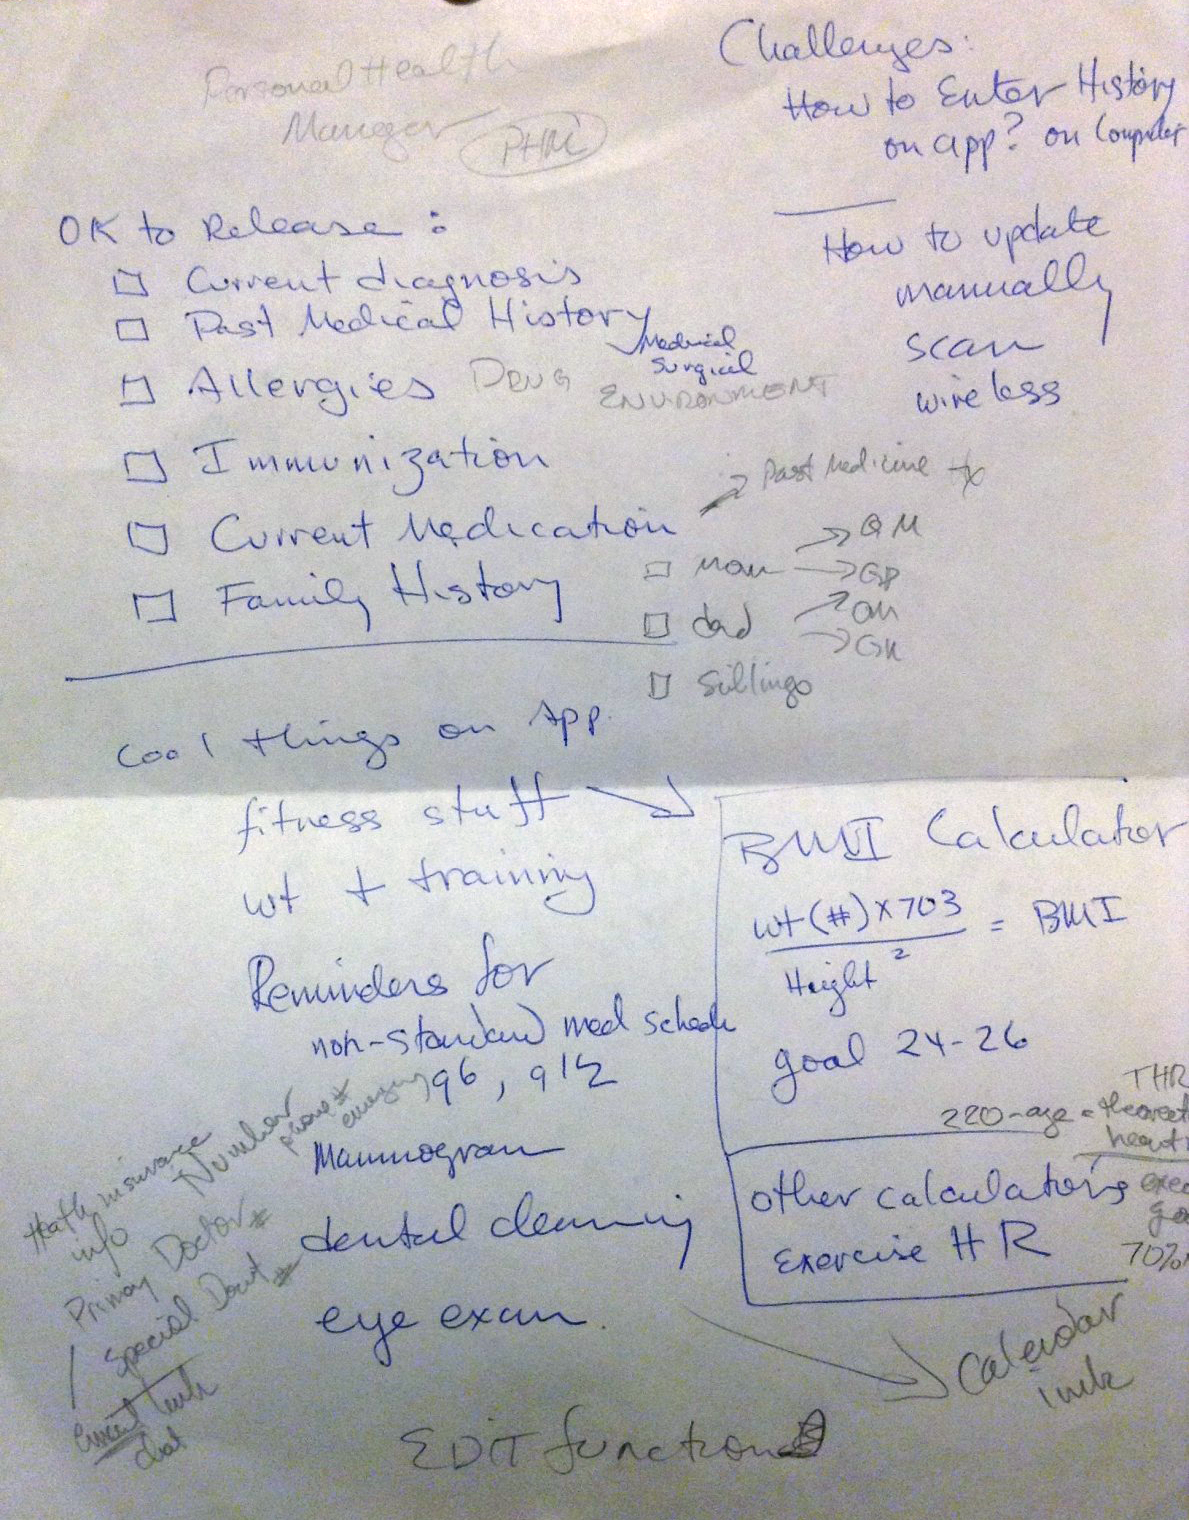 Personal Health
Manager PHM
Challenges:
How to Enter History
on app? on Computer
How to update
manually
scan
wireless
OK to Release:
Current diagnosis
Past Medical History
Medical
Surgical
Allergies DRUG
ENVIRONMENT
Immunization
Past Medicine
Current Medication
Mom → GM
→ GP
Family History
dad
Siblings
Cool things on App.
fitness stuff
wt + training
Reminders for
non-standard med schedu
q6, q12
Mammogram
dental cleaning
eye exam.
BMI Calculator
wt (#) x 703 = BMI
Height 2
goal 24-26
THR
220-age = theoret
heart
other calculators
exerc
Exercise HR
70%
Calendar
link
Health insurance
info Number
phone #
emergency
Primary Doctor #
Special Doct #
EDIT function